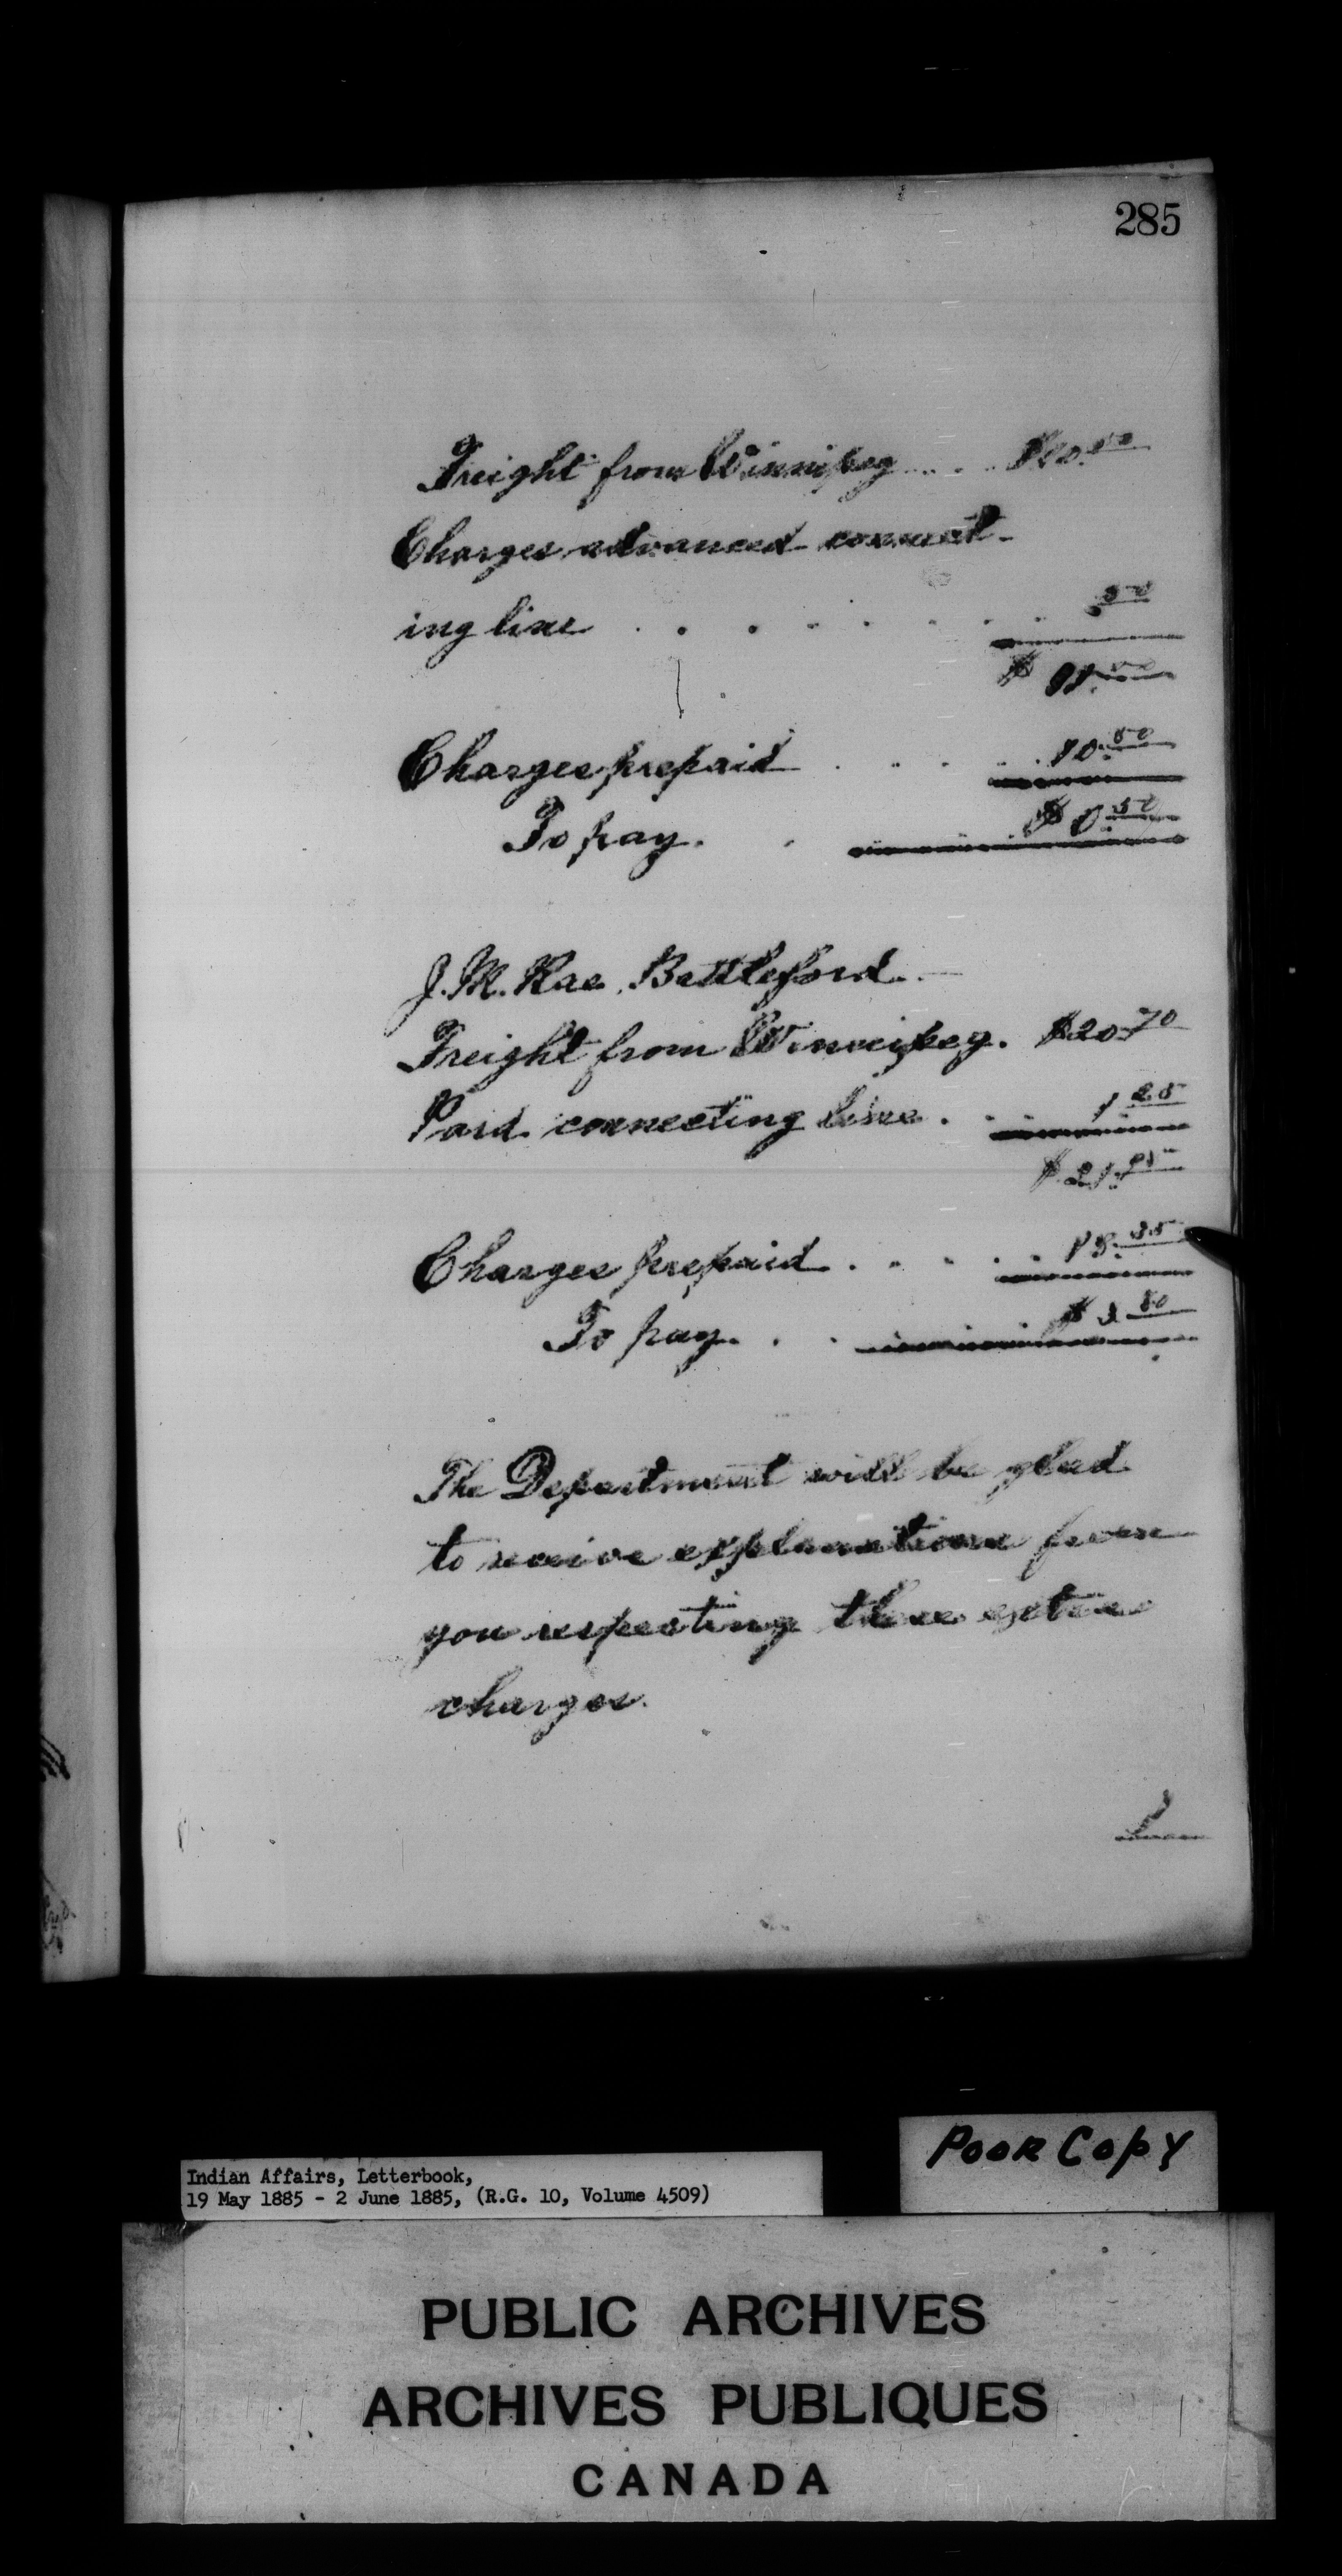 285
Freight from Winnipeg .... $10.50
Charges advanced connect-
ing line . . . . . . . . .50
$ 11.00
Charges prepaid . . . . . 10.50
To pay. . $ 0.50
J. M. Rae, Battleford.
Freight from Winnipeg. $20.70
Paid connecting line . . . 1.25
$ 21.95
Charges prepaid . . . . .
To pay. . . $
The Department will be glad
to receive explanations from
you respecting these extra
charges.
Poor Copy
Indian Affairs, Letterbook,
19 May 1885 - 2 June 1885, (R.G. 10, Volume 4509)
PUBLIC ARCHIVES
ARCHIVES PUBLIQUES
CANADA